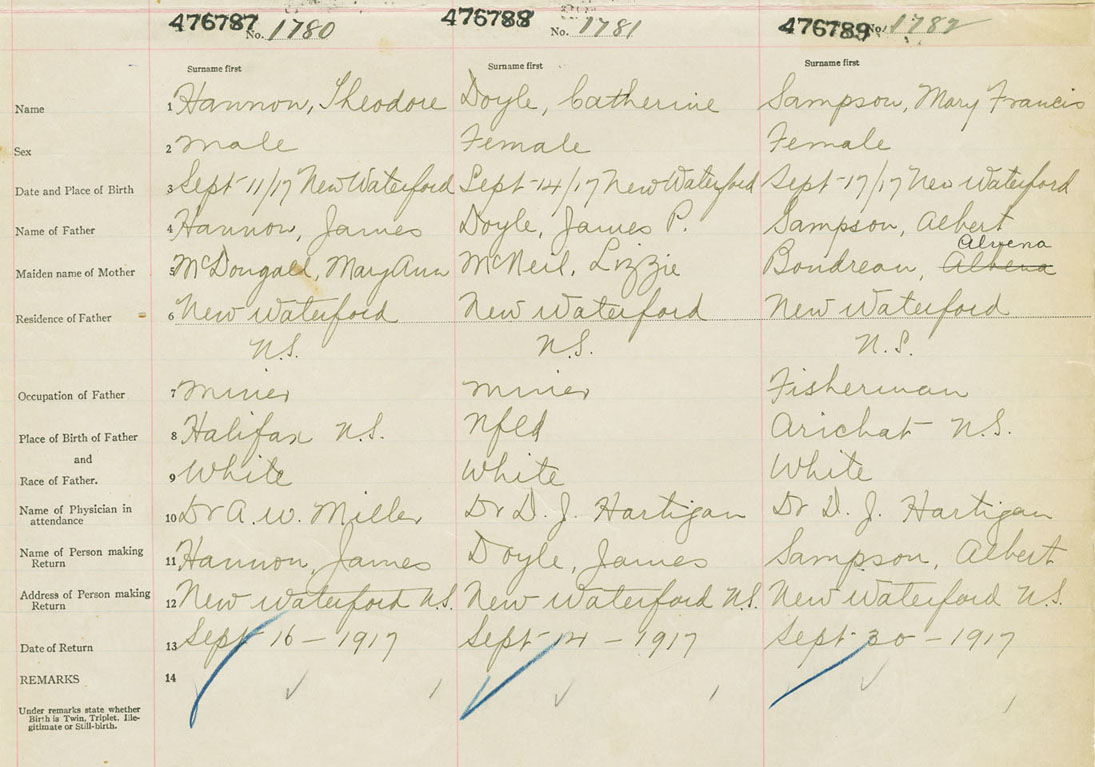 476787 No. 1780 476788 No. 1781 476789 No. 1782
Surname first Surname first Surname first
Name 1 Hannon, Theodore Doyle, Catherine Sampson, Mary Francis
Sex 2 male Female Female
Date and Place of Birth 3 Sept 11/17 New Waterford Sept 14/17 New Waterford Sept 17/17 New Waterford
Name of Father 4 Hannon, James Doyle, James P. Sampson, Albert
Alvena
Maiden name of Mother 5 McDougall, Mary Ann McNeil, Lizzie Boudreau, Albena
Residence of Father 6 New Waterford New Waterford New Waterford
N.S. N.S. N.S.
Occupation of Father 7 miner miner Fisherman
Place of Birth of Father 8 Halifax N.S. Nfld Arichat N.S.
and
Race of Father. 9 White White White
Name of Physician in
attendance 10 Dr A. W. Miller Dr D. J. Hartigan Dr D. J. Hartigan
Name of Person making
Return 11 Hannon, James Doyle, James Sampson, Albert
Address of Person making
Return 12 New Waterford N.S. New Waterford N.S. New Waterford N.S.
Date of Return 13 Sept 16 - 1917 Sept 14 - 1917 Sept 30 - 1917
REMARKS 14
Under remarks state whether
Birth is Twin, Triplet, Ille-
gitimate or Still-birth.